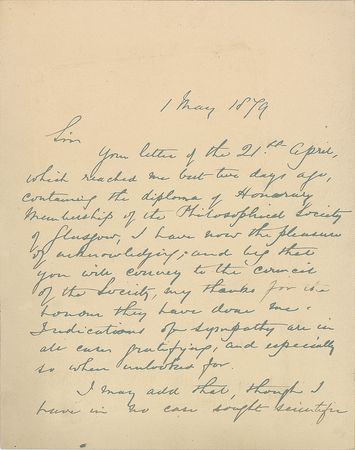 1 May 1879
Sir
Your letter of the 21st April,
which reached me but two days ago,
containing the diploma of Honorary
Membership of the Philosophical Society
of Glasgow, I have now the pleasure
of acknowledging; and beg that
you will convey to the council
of the Society, my thanks for the
honour they have done me.
Indications of sympathy are in
all cases gratifying, and especially
so when unlooked for.
I may add that, though I
have in no case sought scientific